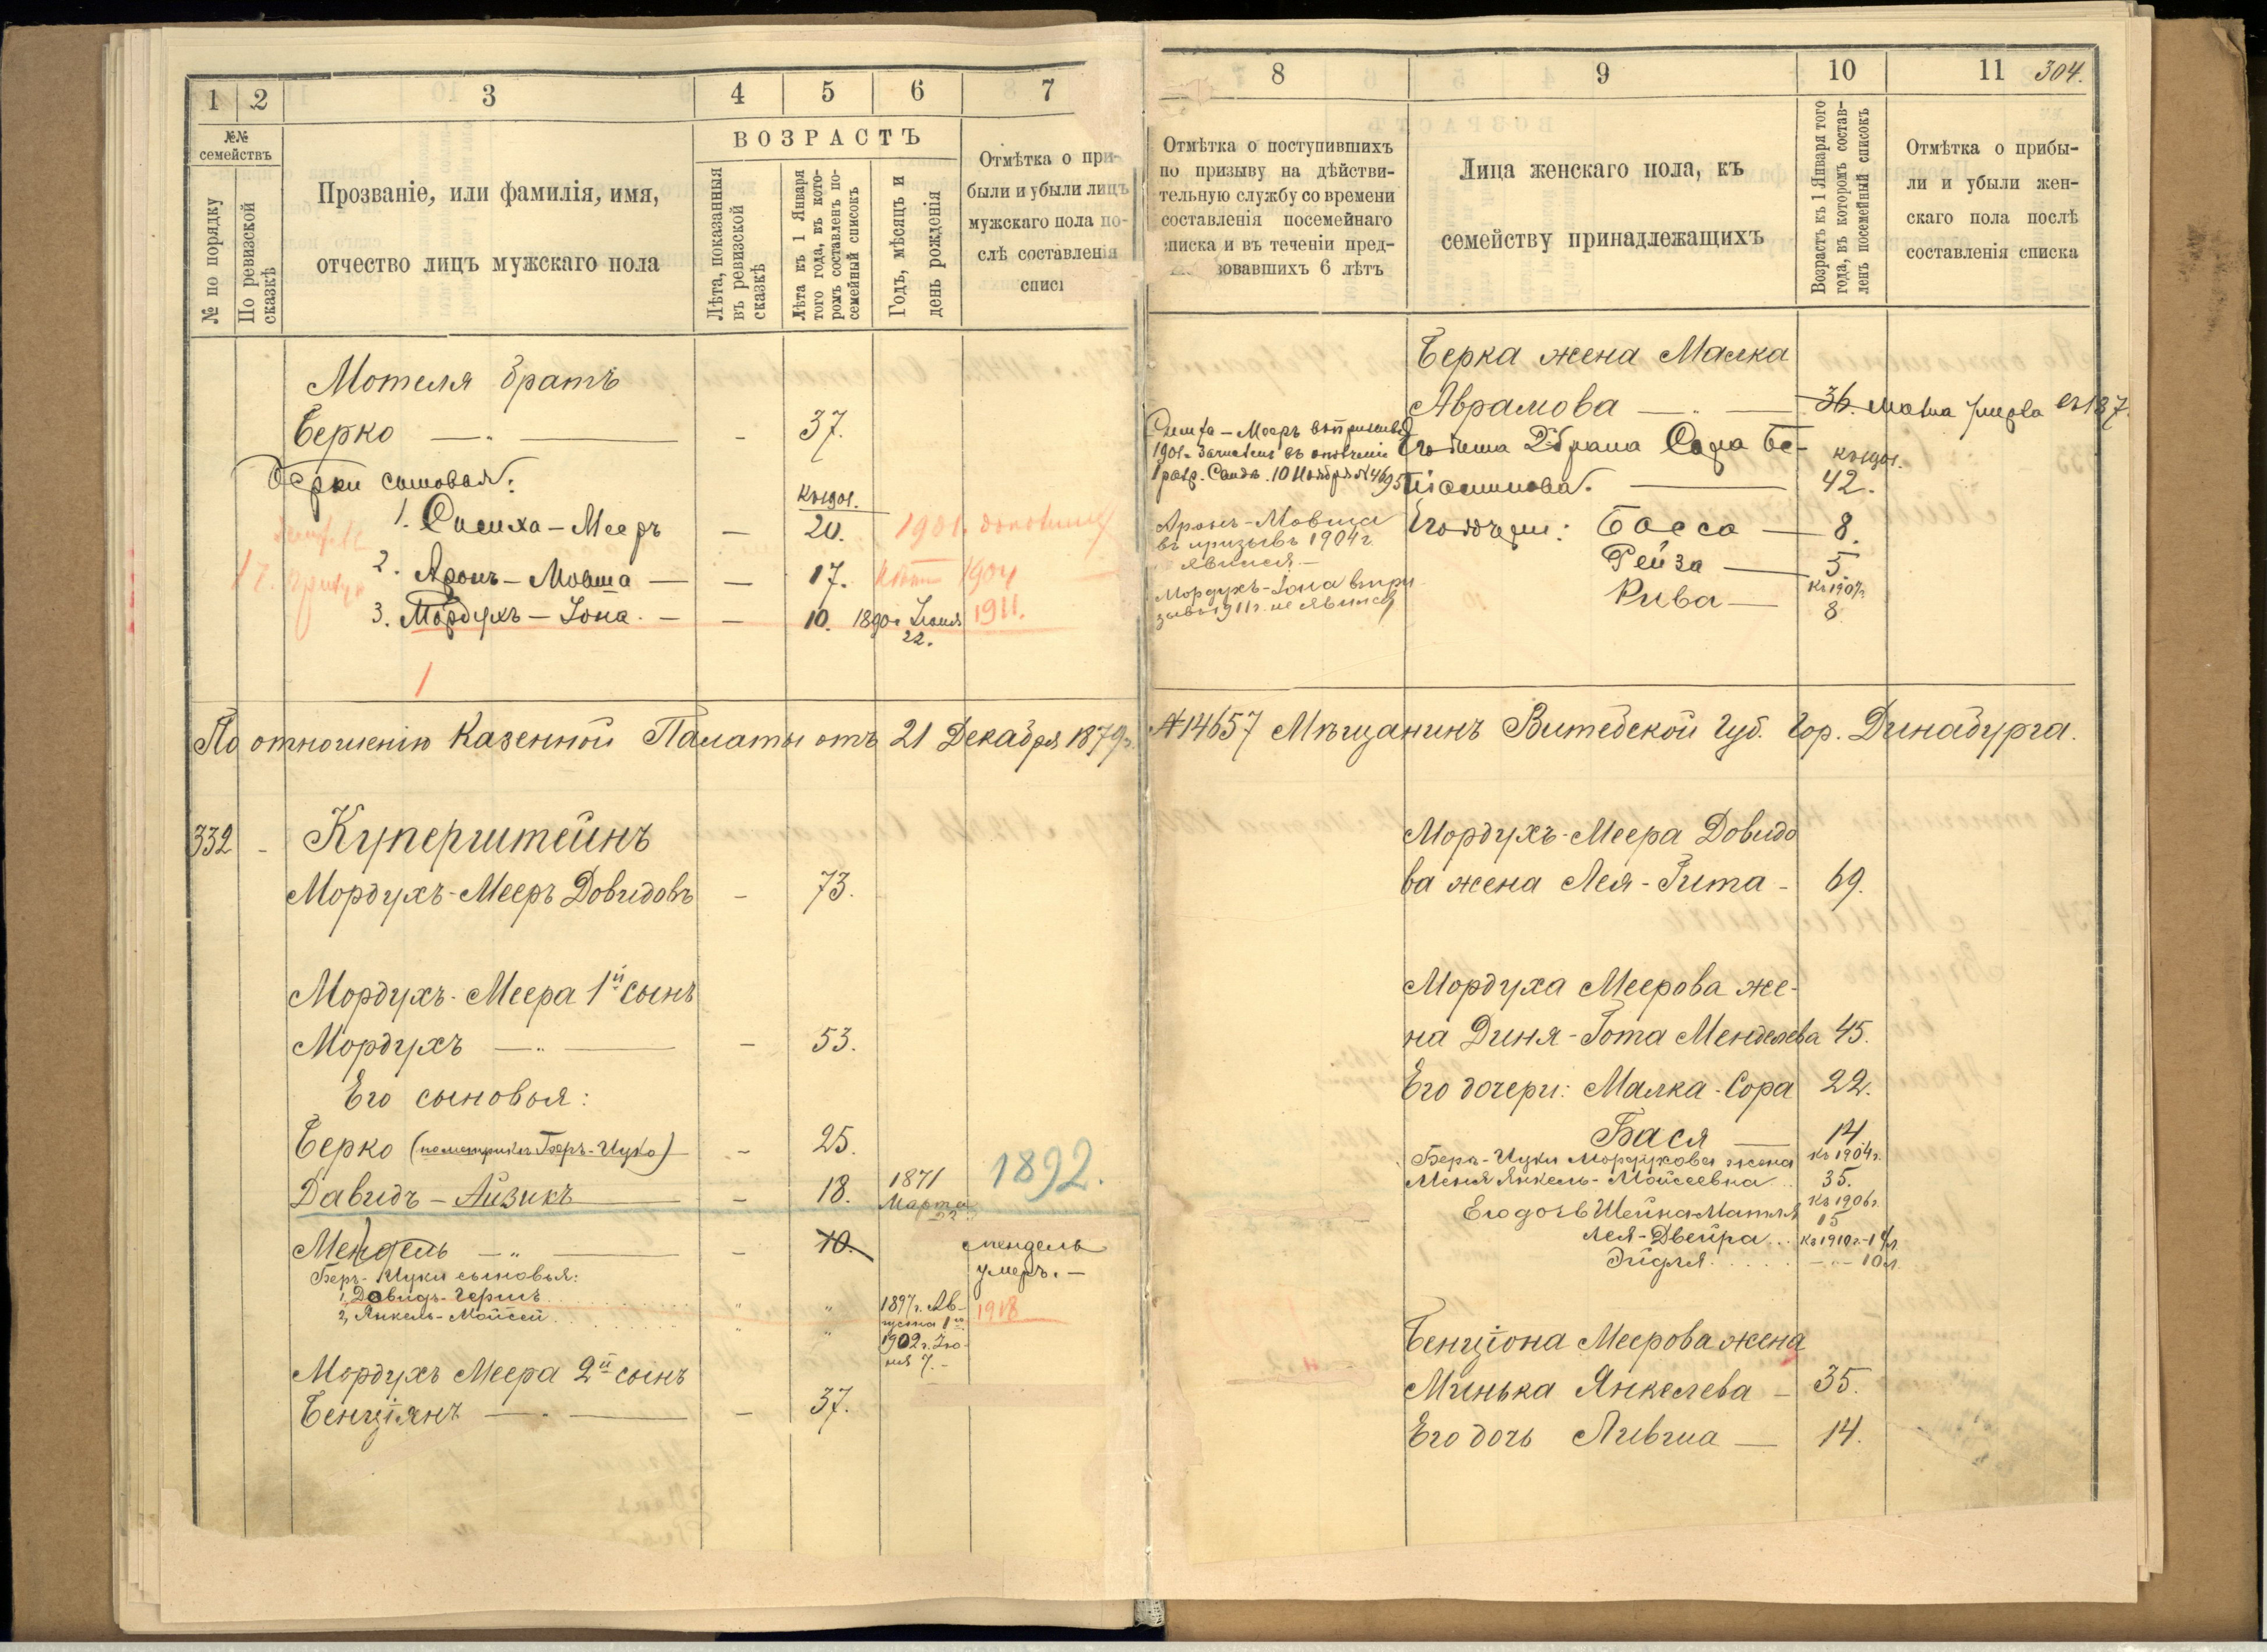 1 2 3 4 5 6 7
№№ семействъ
№ по порядку
По ревизской сказкѣ
Прозваніе, или фамилія, имя,
отчество лицъ мужскаго пола
ВОЗРАСТЪ
Лѣта, показанныя
въ ревизской
сказкѣ
Лѣта къ 1 Января
того года, въ кото-
ромъ составленъ по-
семейный списокъ
Годъ, мѣсяцъ и
день рожденія
Отмѣтка о при-
были и убыли лицъ
мужскаго пола по-
слѣ составленія
списк
Мотеля братъ
Берко — 37.
Берки сыновья:
къ 1901.
1. Симха-Мееръ — 20. 1901.
2. Аронъ-Мовша — 17. 1904
3. Мордухъ-Іона — 10. 1890 г. Іюня 22. 1911.
1
По отношенію Казенной Палаты отъ 21 Декабря 1879 г.
332 - Куперштейнъ
Мордухъ-Мееръ Довидовъ - 73.
Мордухъ-Меера 1й сынъ
Мордухъ — 53.
Его сыновья:
Берко (по метрикѣ Беръ-Ицко) - 25.
Давидъ-Айзикъ - 18. 1871 Марта 22. 1892.
Мендель — 10. Мендель
умеръ. —
Беръ-Ицки сыновья:
1, Довидъ-Герцъ 1897 г. Ав-
густа 1 го 1918
2, Янкель-Мойсей 1902 г. Ію-
ня 7. -
Мордухъ Меера 2й сынъ
Бенціянъ — 37.
8 9 10 11 304.
Отмѣтка о поступившихъ
по призыву на дѣйстви-
тельную службу со времени
составленія посемейнаго
списка и въ теченіи пред-
зовавшихъ 6 лѣтъ
Лица женскаго пола, къ
семейству принадлежащихъ
Возрастъ къ 1 Января того
года, въ которомъ состав-
ленъ посемейный списокъ
Отмѣтка о прибы-
ли и убыли жен-
скаго пола послѣ
составленія списка
Берка жена Малка
Аврамова — 36. Малка умерла
Симха-Мееръ въ призывѣ
1901 г. зачисленъ въ ополченіе
10 Ноября
Его жена 2 брака Сора Бе-
къ 1901.
42.
Аронъ-Мовша
въ призывѣ 1904 г.
явился —
Его дочери: Басса — 8.
Рейза — 5
Мордухъ-Іона въ при-
зывѣ 1911 г. не явился
къ 1907 г.
Рива — 8
№ 14657 Мѣщанинъ Витебской Губ. Гор. Динабурга.
Мордухъ-Меера Довидо
ва жена Лея-Гита - 69.
Мордуха Меерова же-
на Диня-Гота Менделева 45.
Его дочери: Малка-Сора 22.
Бася — 14
Беръ-Ицки Мордухова жена къ 1904 г.
Меня Янкель-Мойсеевна 35.
къ 1906 г.
Его дочь Шейна-Матля 15
Лея-Двейра... къ 1910 г. - 14 л.
Эйдля..... 10 л.
Бенціона Меерова жена
Минька Янкелева - 35.
Его дочь Ливша — 14.